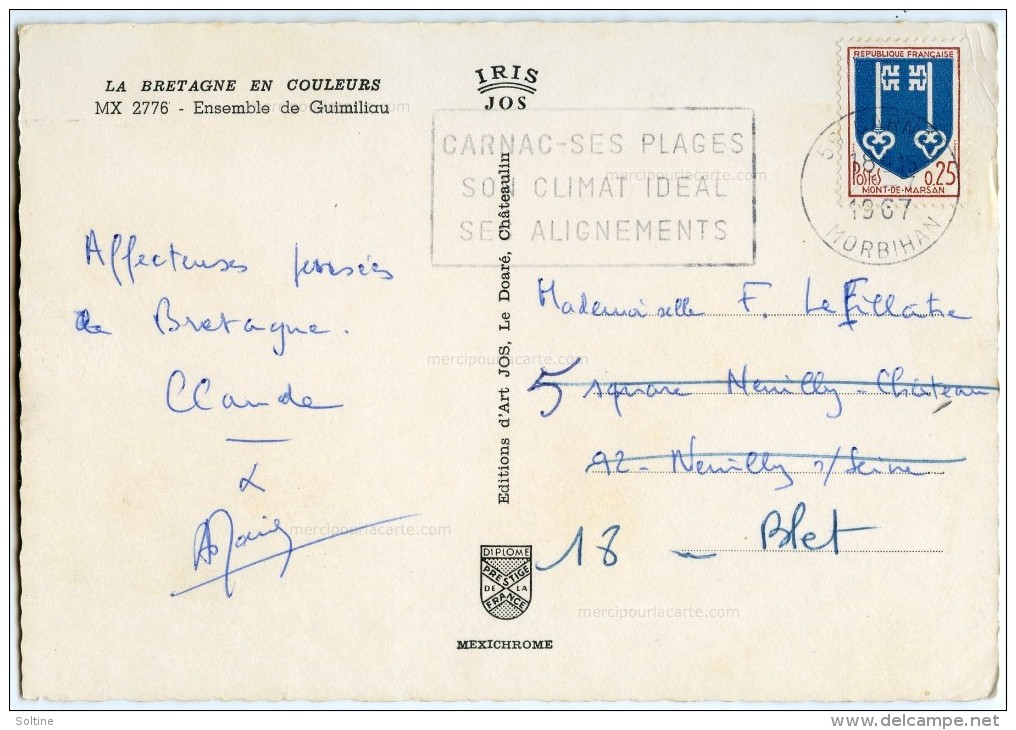 LA BRETAGNE EN COULEURS
MX 2776 - Ensemble de Guimiliau
IRIS
JOS
CARNAC-SES PLAGES
SON CLIMAT IDEAL
SES ALIGNEMENTS
REPUBLIQUE FRANÇAISE
POSTES 0.25
MONT-DE-MARSAN
1967
MORBIHAN
Affectueuses pensées
de Bretagne.
Claude
Editions d'Art JOS, Le Doaré, Châteaulin
Mademoiselle F. Le Fillatre
5 square Neuilly-Château
92 - Neuilly s/Seine
18 - Blet
DIPLOME
PRESTIGE
DE LA
FRANCE
MEXICHROME
mercipourlacarte.com
mercipourlacarte.com
mercipourlacarte.com
mercipourlacarte.com
mercipourlacarte.com
Soltine
www.delcampe.net